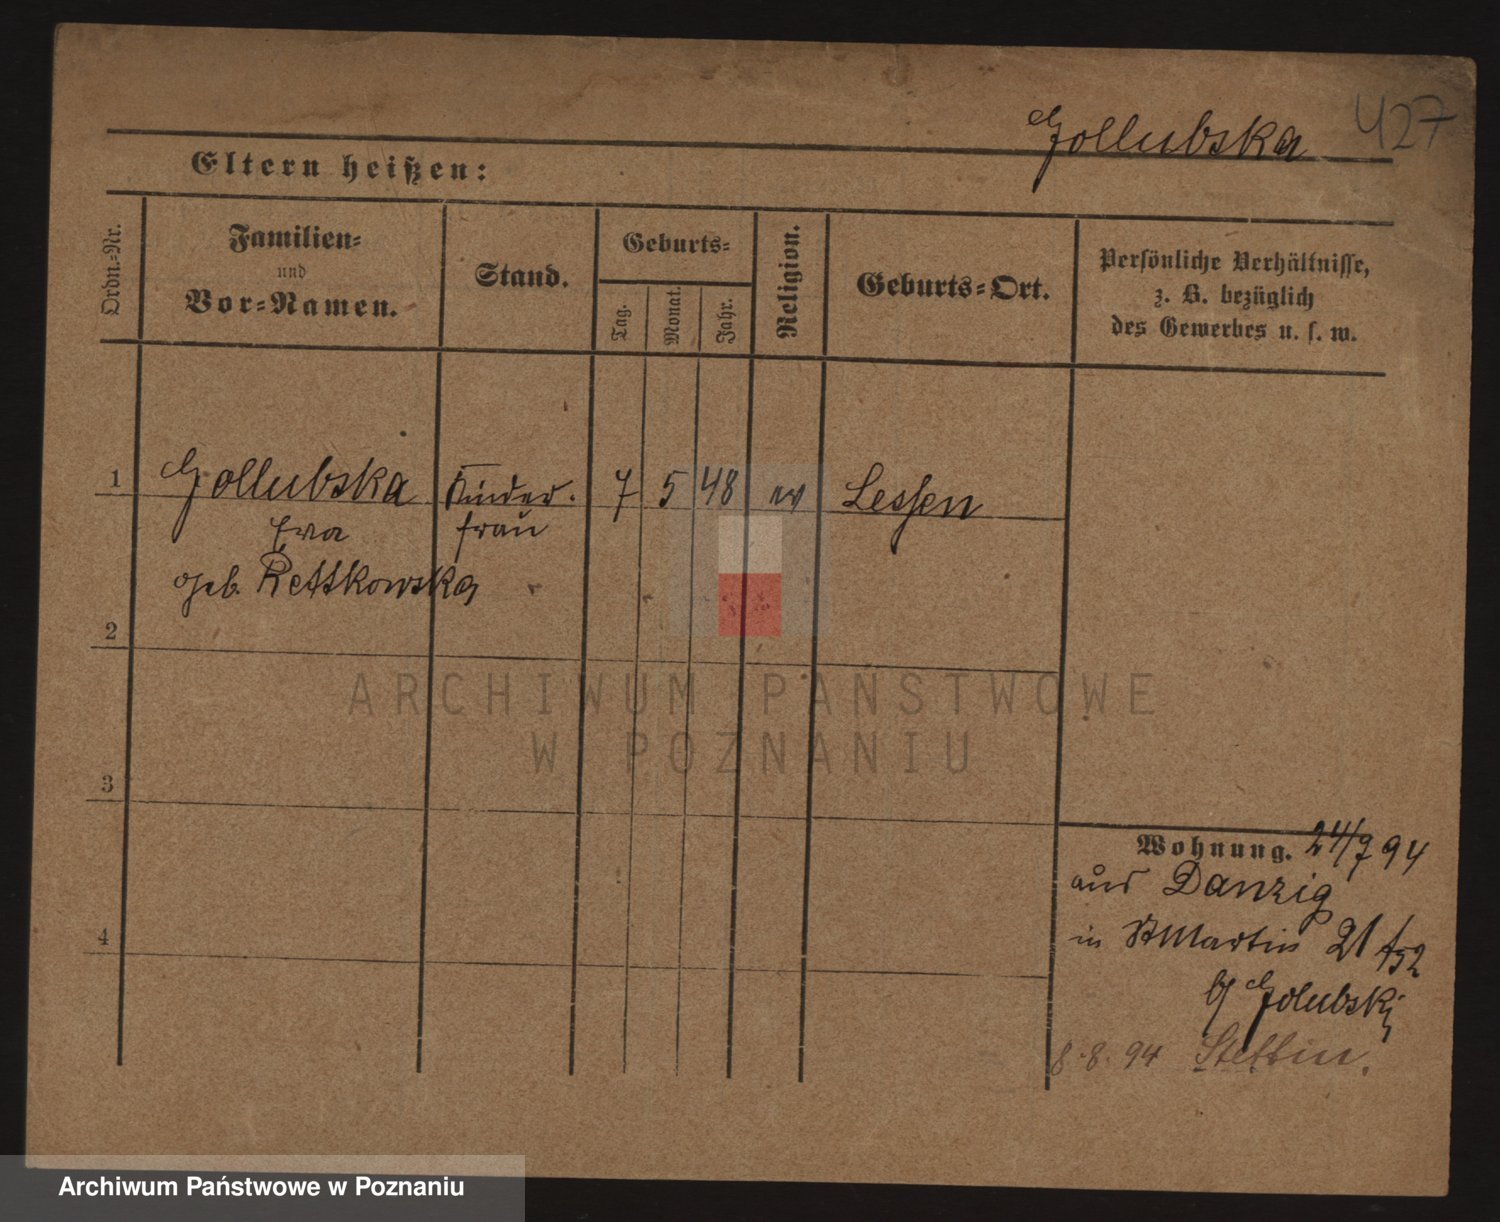 Gollubska 427
Eltern heißen:
Ordn.-Nr.
Familien-
und
Vor-Namen.
Stand.
Geburts-
Tag.
Monat.
Jahr.
Religion.
Geburts-Ort.
Persönliche Verhältnisse,
z. B. bezüglich
des Gewerbes u. s. w.
1 Gollubska Kinder- 7 5 48 ev Lessen
Eva frau
geb. Rettkowska
2
3
4
Wohnung. 24/7 94
aus Danzig
in St Martin 21
b/ Golubski
8.8.94 Stettin.
ARCHIWUM PAŃSTWOWE
W POZNANIU
Archiwum Państwowe w Poznaniu